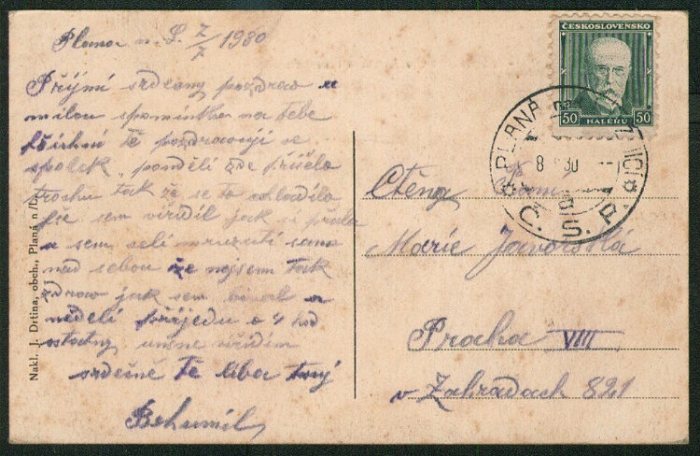 Planá n. L. 7/7 1930
Přijmi srdečny pozdrav a
milou spomínku na tebe
tě pozdravuji
spolek pondělí zde přišelo
trochu tak že se to ochladilo
sem viděl jak
a sem celi mrzutí sama
nad sebou že nejsem tak
zdrav jak sem bival a
neděli přijedu o 4 hod
ostatny ustne
srdečně tě líba tvuj
Bohumil
Nakl. J. Drtina, obch., Planá n/L.
ČESKOSLOVENSKO
50 HALÉŘŮ 50
PLANÁ NICÍ
8 30
Č. S. P.
Ctěna
Marie Javorská
Praha VIII
v Zahradach 821